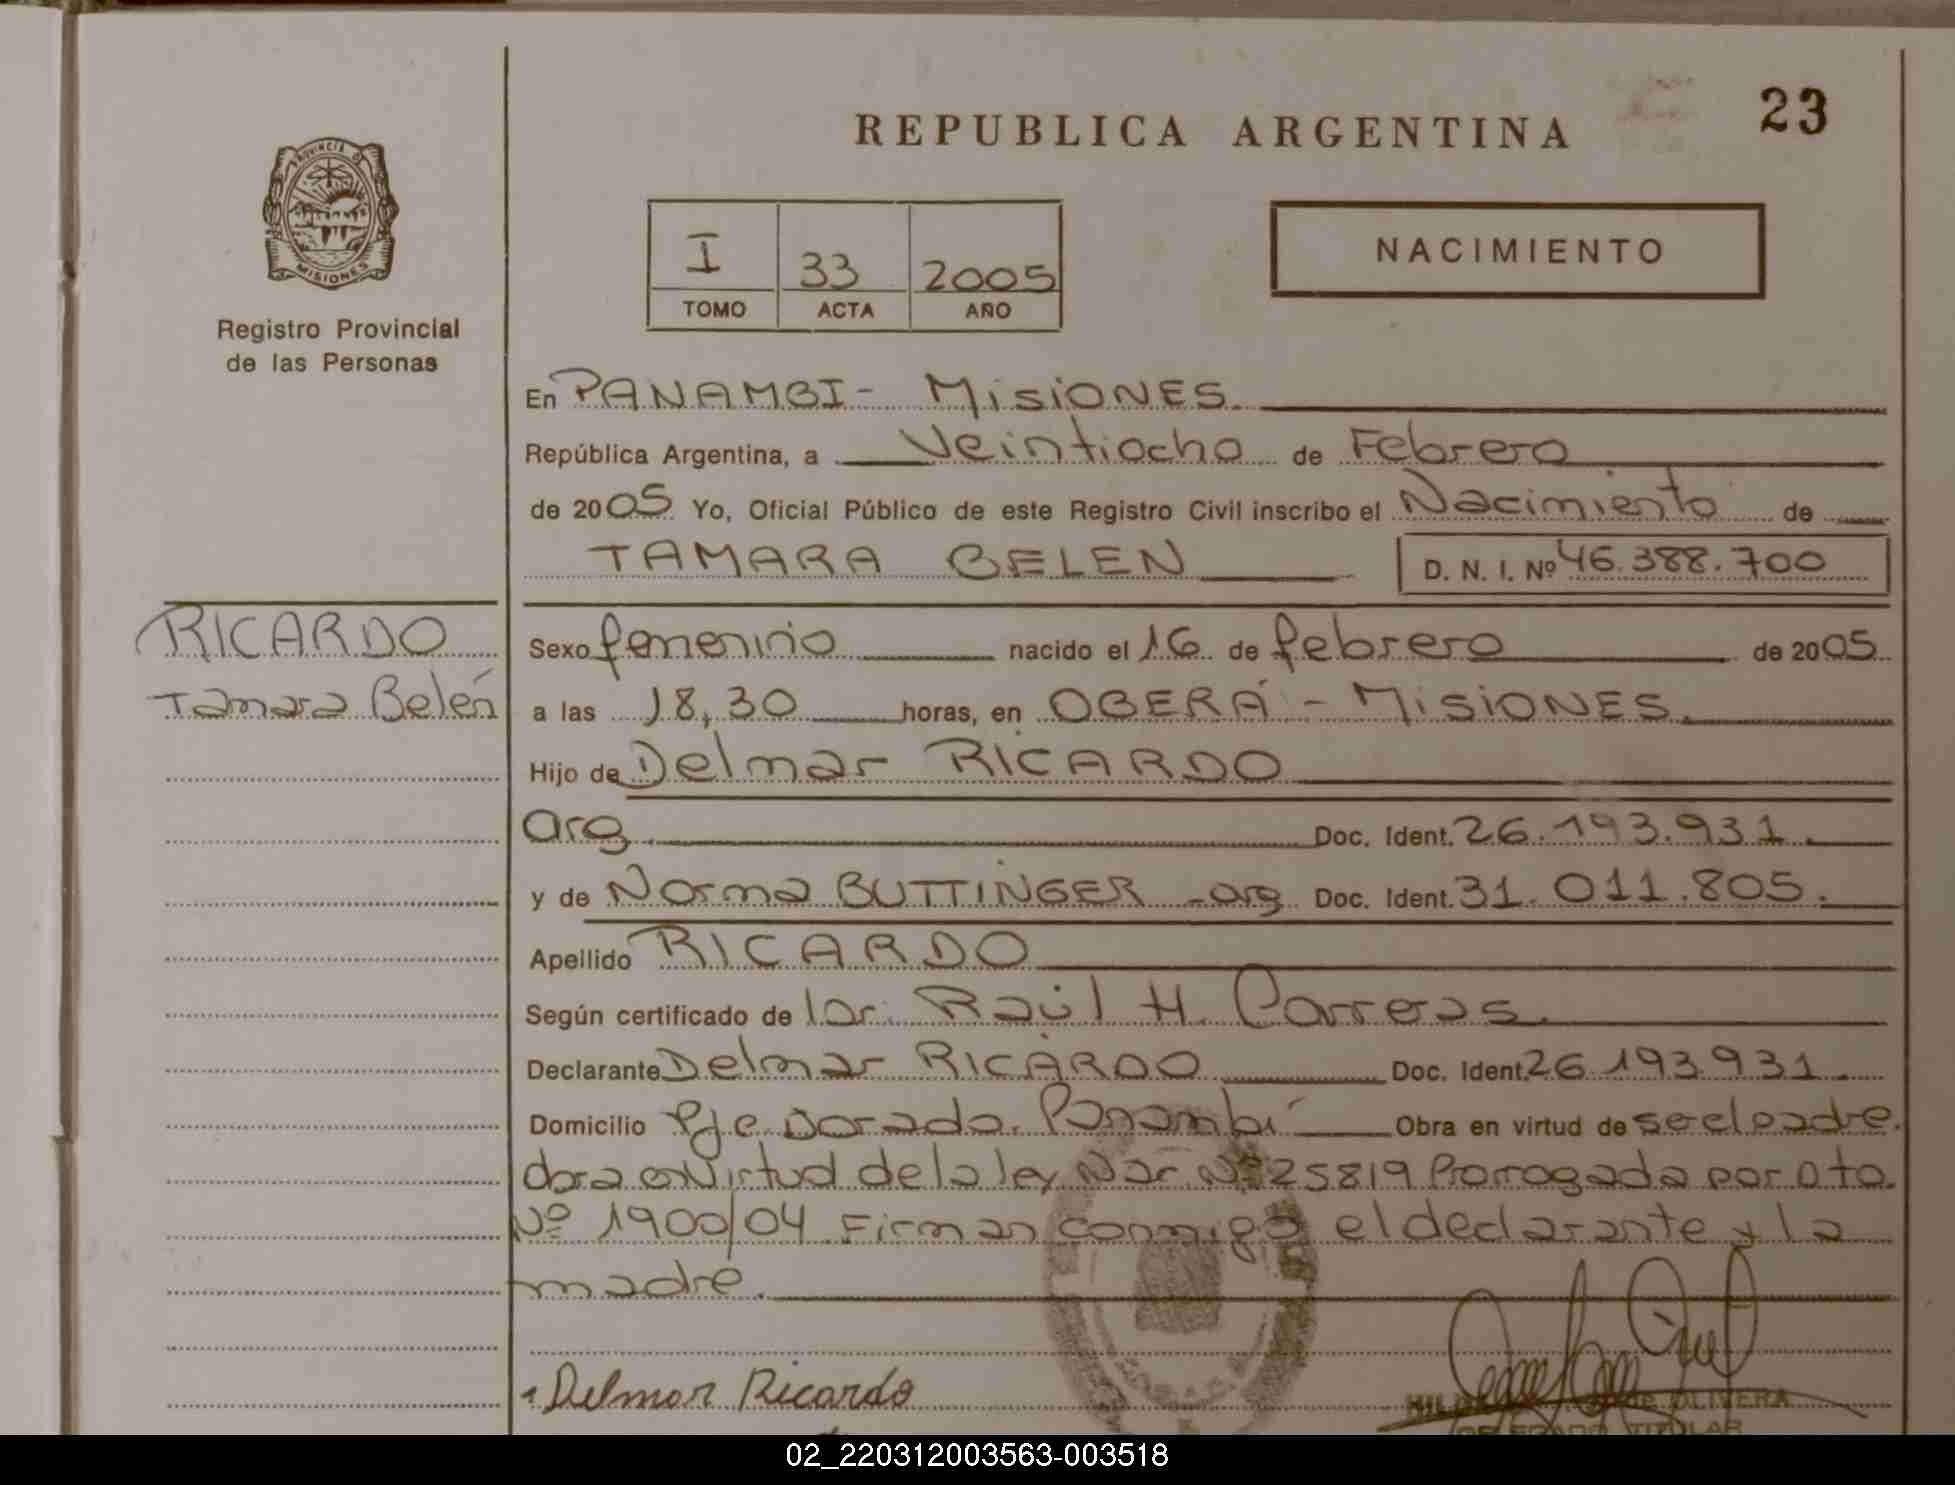 REPUBLICA ARGENTINA
23
PROVINCIA DE
MISIONES
Registro Provincial
de las Personas
I 33 2005
TOMO ACTA AÑO
NACIMIENTO
En PANAMBI- MISIONES.
República Argentina, a Veintiocho de Febrero
de 2005 Yo, Oficial Público de este Registro Civil inscribo el Nacimiento de
TAMARA BELEN D. N. I. Nº 46.388.700
RICARDO
Tamara Belén
Sexo femenino nacido el 16 de febrero de 2005
a las 18,30 horas, en OBERÁ - MISIONES.
Hijo de Delmar RICARDO
arg. Doc. Ident. 26.193.931.
y de Norma BUTTINGER -arg Doc. Ident. 31.011.805.
Apellido RICARDO
Según certificado de Raúl H. Carreras.
Declarante Delmar RICARDO Doc. Ident. 26.193.931.
Domicilio Pje Dorado. Panambí Obra en virtud de ser el padre.
obra en Virtud de la ley Nac. Nº 25819 Prorrogada por Dto.
Nº 1900/04. Firman conmigo el declarante y la
madre.
Delmar Ricardo
OLIVERA
TITULAR
02_220312003563-003518